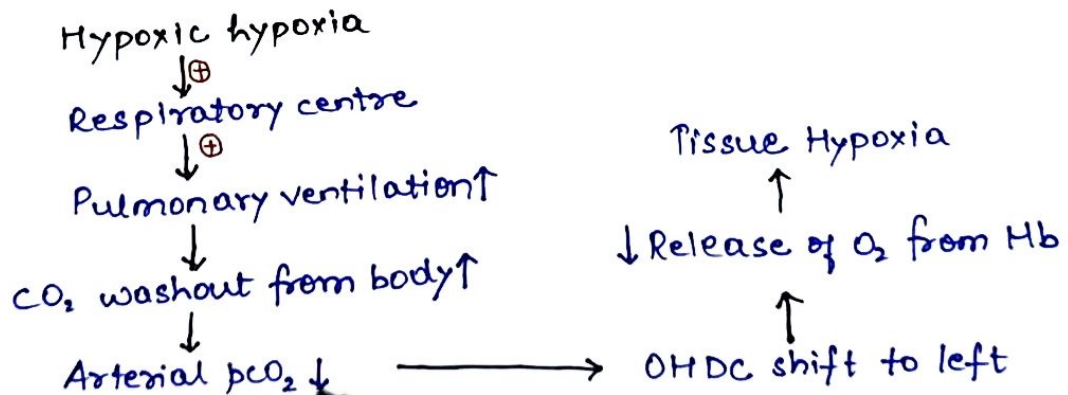 Hypoxic hypoxia
↓⊕
Respiratory centre
↓⊕
Pulmonary ventilation↑
↓
CO₂ washout from body↑
↓
Arterial pCO₂ ↓ →
OHDC shift to left
↑
↓ Release of O₂ from Hb
↑
Tissue Hypoxia